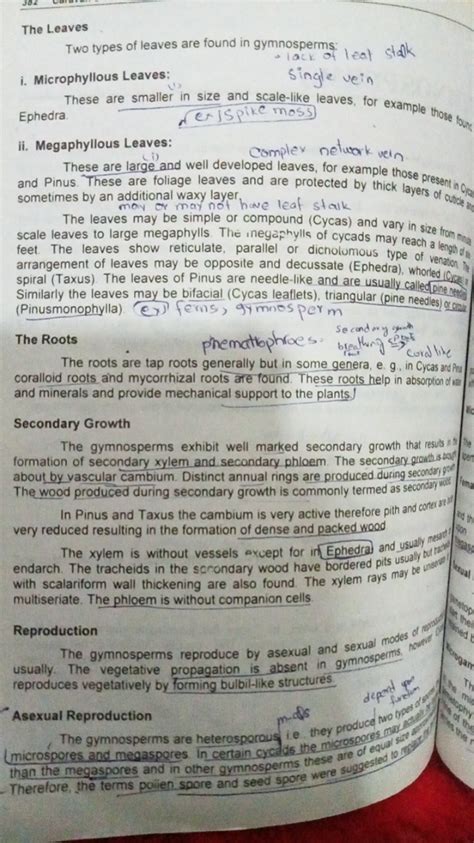 382
The Leaves
Two types of leaves are found in gymnosperms:
• lack of leaf stalk
i. Microphyllous Leaves:
Single vein
These are smaller in size and scale-like leaves, for example those found
Ephedra.
(ex) spike moss
ii. Megaphyllous Leaves:
Complex network vein
These are large and well developed leaves, for example those present in Cycas
and Pinus. These are foliage leaves and are protected by thick layers of cuticle and
sometimes by an additional waxy layer.
may or may not have leaf stalk
The leaves may be simple or compound (Cycas) and vary in size from
scale leaves to large megaphylls. The megaphylls of cycads may reach a length of
feet. The leaves show reticulate, parallel or dichotomous type of venation. The
arrangement of leaves may be opposite and decussate (Ephedra), whorled (Cycas)
spiral (Taxus). The leaves of Pinus are needle-like and are usually called pine needles
Similarly the leaves may be bifacial (Cycas leaflets), triangular (pine needles) or
(Pinusmonophylla).
(ex) ferns, gymnosperm
secondary growth
The Roots
breathing
coral like
The roots are tap roots generally but in some genera, e. g., in Cycas and Pinus
coralloid roots and mycorrhizal roots are found. These roots help in absorption of water
and minerals and provide mechanical support to the plants.
Secondary Growth
The gymnosperms exhibit well marked secondary growth that results in the
formation of secondary xylem and secondary phloem. The secondary growth is brought
about by vascular cambium. Distinct annual rings are produced during secondary growth
The wood produced during secondary growth is commonly termed as secondary wood.
In Pinus and Taxus the cambium is very active therefore pith and cortex are
very reduced resulting in the formation of dense and packed wood.
The xylem is without vessels except for in Ephedra and usually mesarch
endarch. The tracheids in the secondary wood have bordered pits usually but tracheids
with scalariform wall thickening are also found. The xylem rays may be uniseriate
multiseriate. The phloem is without companion cells.
Reproduction
The gymnosperms reproduce by asexual and sexual modes of reproduction
usually. The vegetative propagation is absent in gymnosperms, however
reproduces vegetatively by forming bulbil-like structures.
depend upon
function
Asexual Reproduction
The gymnosperms are heterosporous i.e. they produce two types of spores
microspores and megaspores. In certain cycads the microspores may actually be
than the megaspores and in other gymnosperms these are of equal size
Therefore, the terms pollen spore and seed spore were suggested to replace the